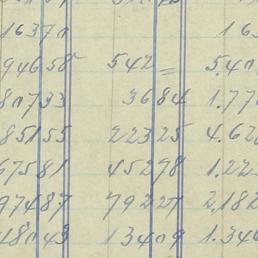 16370 163
94658 542 = 5.40
80733 3684 1.77
85155 22325 4.62
67581 45278 1.22
97487 79227 2.182
48043 13409 1.346